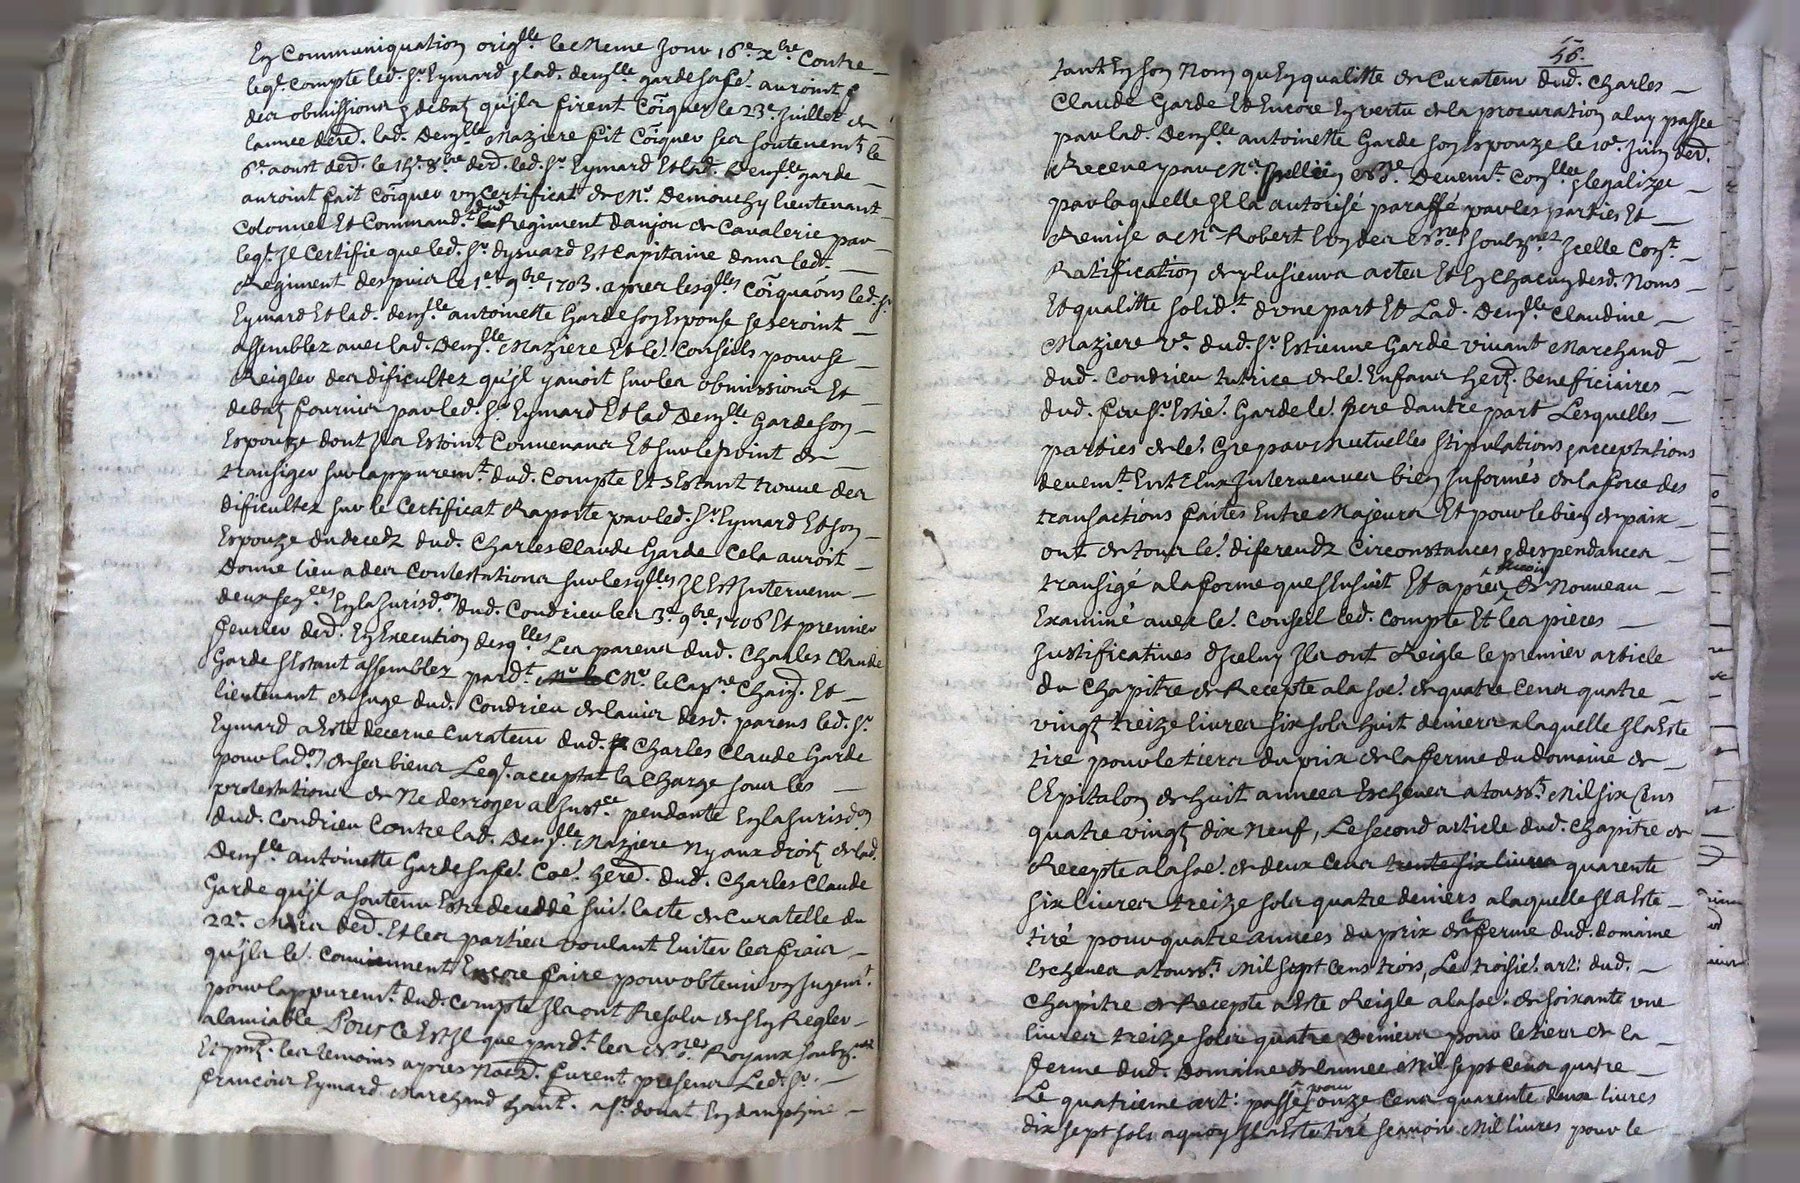 En Communiquation orig.lle le Meme Jour 16.e x.bre Contre
leq.l compte led. S.r Eymard & lad. dem.lle garde sa fe. auroint f
des obmissions & debatz qu'ils firent Coiquer le 23.e Juillet de
lannee derd. lad. Dem.lle Maziere fit Coiquer ses soutenem.t le
6.e aoust derd. le 15.e 8.bre derd. led. S.r Eymard Et lad. Dem.lle garde
auroint fait Coiquer un Certificat de M.r Demouchy lieutenant
Colonnel Et Command.t dud. Regiment danjou de Cavalerie par
leq.l Il Certifie que led. S.r Eymard Est Capitaine dans led.
Regiment despuis le 1.er 9.bre 1703. apres lesq.lles Coiquaons led. S.r
Eymard Et lad. dem.lle antoinette Garde son Esponse se seroint
assemblez avec lad. Dem.lle Maziere Et le. Conseils pour se
Reigler des dificultez qu'il y avoit sur les obmissions Et
debatz fournis par led. S.r Eymard Et lad Dem.lle Garde son
Espouze dont Ils Estoint Convenans Et sur le point de
transiger sur lappurem.t dud. Compte Et sestant trouve des
dificultez sur le Certificat Raporté par led. S.r Eymard Et son
Espouze du decedz dud. Charles Claude Garde Cela auroit
Donne lieu a des Contestations sur lesq.lles Il Est Intervenu
deux sen.ces En la Jurisd.on dud. Condrieu les 3.e 9.bre 1706 Et premier
fevrier derd. En Execution desq.lles Les parens dud. Charles Claude
Garde sestant assemblez pard.t M.r le C M.r le Cap.ne Chaiz. Et
lieutenant de Juge dud. Condrieu de lavis desd. parens led. S.r
Eymard a Esté decerne Curateur dud. Charles Claude Garde
pour lad.on de ses biens Leq.l acceptat la Charge sous les
protestations de Ne desroger a l'Inst.ce pendante En la Jurisd.on
dud. Condrieu Contre lad. Dem.lle Maziere Ny aux droitz de lad.
Dem.lle antoinette Garde sa fe. Coe. hered. dud. Charles Claude
Garde qu'il a soutenu Estre deceddé suiv. lacte de Curatelle du
22.e Mars derd. Et les parties voulant Eviter les frais
qu'ils le. Conviennent Encore faire pour obtenir un Jugem.t
pour lappurem.t dud. Compte Ils ont Resolu de s En Regler
alamiable Pour Ce Est Il que pard.t les no.res Royaux soubz.nez
Et pntz. les temoins apres Nomd. furent presens Led. S.r
francois Eymard Marchand hant. a St donat En dauphine
56.
tant En son Nom qu En qualitte de Curateur dud. Charles
Claude Garde Et Encore En vertu de la procuration a luy passee
par lad. Dem.lle antoinette Garde son Espouze le 10.e Juin derd.
Receue par M.e no.re Devem.t Con.llee & legalizee
par laquelle Il la autorisé paraffé par les parties Et
Remise a M.e Robert l un des no.res soubz.nez Icelle Con.t
Ratification de plusieurs actes Et En Chacun desd. Noms
Et qualitte solid.t dune part Et Lad. Dem.lle Claudine
Maziere v.e dud. S.r Estienne Garde vivant Marchand
dud. Condrieu tutrice de le. Enfans hertz. beneficiaires
dud. feu S.r Estie. Garde le. pere dautre part Lesquelles
parties de le. Gre par Mutuelles stipulations & acceptations
devem.t Entr Eux Intervenues bien Informés de la force des
transactions faites Entre Majeurs Et pour le bien de paix
ont de tous le. diferendz Circonstances & despendances
transigé a la forme que sEnsuit Et après avoir de Nouveau
Examiné avec le. Conseil led. compte Et les pieces
Justificatives dIceluy Ils ont Reigle le premier article
du Chapitre de Recepte a la soe. de quatre Cens quatre
vingtz treize livres six sols huit deniers a laquelle Il a Esté
tire pour le tiers du prix de la ferme du domaine de
l Epitalon de huit annees Escheues a touss.ts Mil six Cens
quatre vingtz dix Neuf, Le second article dud. Chapitre de
Recepte a la soe. de deux Cens trente six livres quarente
six livres treize sols quatre deniers a laquelle Il a Esté
tiré pour quatre années du prix de la ferme dud. domaine
Escheues a touss.ts Mil sept Cens trois, Le troisie. art: dud.
Chapitre de Recepte a Esté Reigle a la soe. de soixante une
livres treize sols quatre Deniers pour le tiers de la
ferme dud. Domaine de lannee Mil sept Cens quatre
Le quatrieme art: passé pour onze Cens quarente deux livres
dix sept sols a quoy Il a Esté tiré scavoir Mil livres pour le